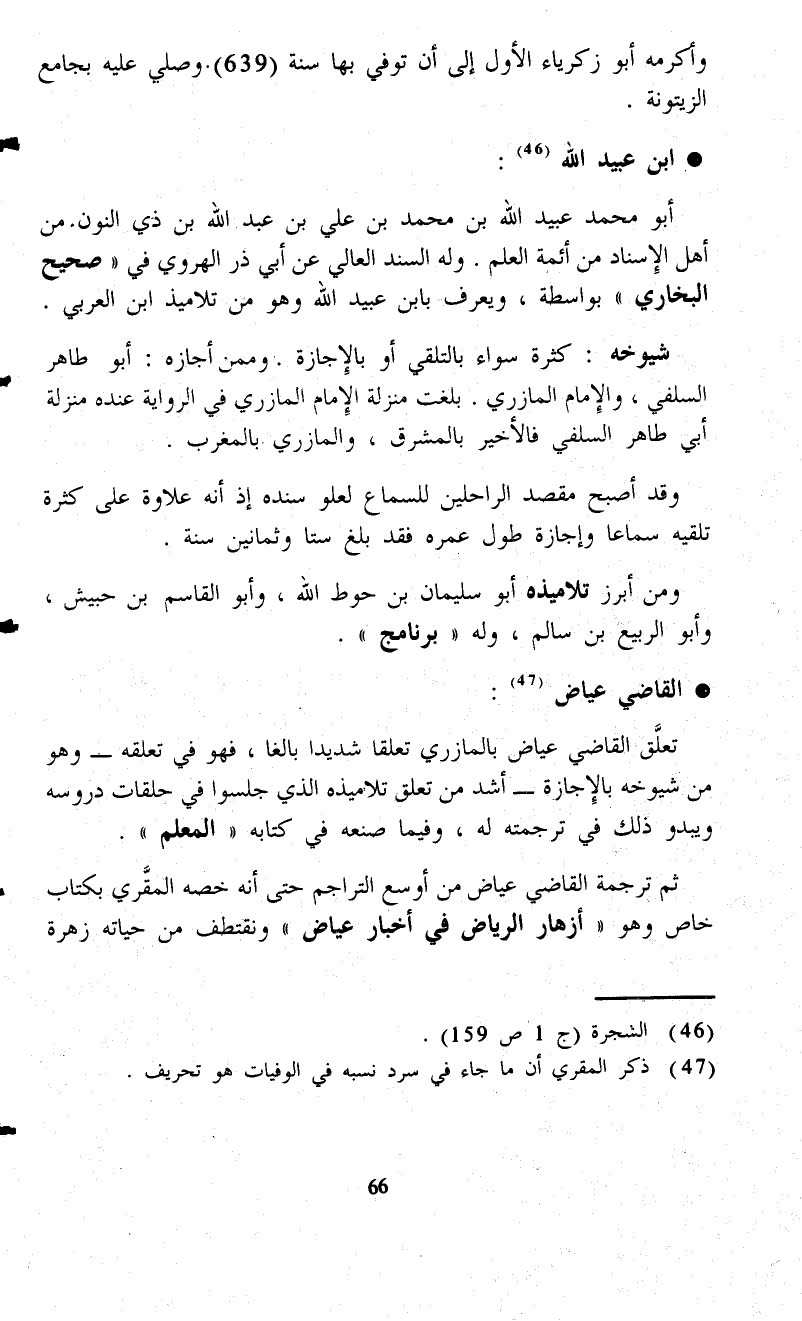 وأكرمه أبو زكرياء الأول إلى أن توفي بها سنة (639).وصلي عليه بجامع
الزيتونة .
● ابن عبيد الله (46) :
أبو محمد عبيد الله بن محمد بن علي بن عبد الله بن ذي النون.من
أهل الإسناد من أئمة العلم . وله السند العالي عن أبي ذر الهروي في « صحيح
البخاري » بواسطة ، ويعرف بابن عبيد الله وهو من تلاميذ ابن العربي .
شيوخه : كثرة سواء بالتلقي أو بالإجازة . وممن أجازه : أبو طاهر
السلفي ، والإمام المازري . بلغت منزلة الإمام المازري في الرواية عنده منزلة
أبي طاهر السلفي فالأخير بالمشرق ، والمازري بالمغرب .
وقد أصبح مقصد الراحلين للسماع لعلو سنده إذ أنه علاوة على كثرة
تلقيه سماعا وإجازة طول عمره فقد بلغ ستا وثمانين سنة .
ومن أبرز تلاميذه أبو سليمان بن حوط الله ، وأبو القاسم بن حبيش ،
وأبو الربيع بن سالم ، وله « برنامج » .
● القاضي عياض (47) :
تعلَّق القاضي عياض بالمازري تعلقا شديدا بالغا ، فهو في تعلقه — وهو
من شيوخه بالإجازة — أشد من تعلق تلاميذه الذي جلسوا في حلقات دروسه
ويبدو ذلك في ترجمته له ، وفيما صنعه في كتابه « المعلم » .
ثم ترجمة القاضي عياض من أوسع التراجم حتى أنه خصه المقَّري بكتاب
خاص وهو « أزهار الرياض في أخبار عياض » ونقتطف من حياته زهرة
(46) الشجرة (ج 1 ص 159) .
(47) ذكر المقري أن ما جاء في سرد نسبه في الوفيات هو تحريف .
66